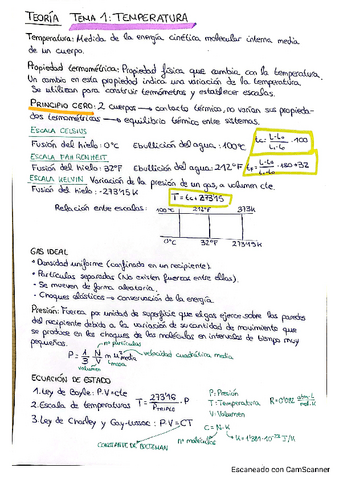 TEORÍA TEMA 1: TEMPERATURA
Temperatura: Medida de la energía cinética molecular interna media
de un cuerpo.
Propiedad termométrica: Propiedad física que cambia con la temperatura.
Un cambio en esta propiedad indica una variación de la temperatura.
Se utilizan para construir termómetros y establecer escalas.
PRINCIPIO CERO: 2 cuerpos → contacto térmico, no varían sus propieda-
des termométricas → equilibrio térmico entre sistemas.
ESCALA CELSIUS
Fusión del hielo: 0°C Ebullición del agua: 100°C
ESCALA FAHRENHEIT
Fusión del hielo: 32°F Ebullición del agua: 212°F
ESCALA KELVIN Variación de la presión de un gas, a volumen cte.
Fusión del hielo: -273'15 K
T = tc + 273'15
Relación entre escalas: 100°C 212°F 373K
0°C 32°F 273'15K
GAS IDEAL
• Densidad uniforme (confinada en un recipiente).
• Partículas separadas (No existen fuerzas entre ellas).
• Se mueven de forma aleatoria.
• Choques elásticos → conservación de la energía.
Presión: Fuerza por unidad de superficie que el gas ejerce sobre las paredes
del recipiente debida a la variación de su cantidad de movimiento que
se produce en los choques de las moléculas en intervalos de tiempo muy
pequeños.
nº partículas
P = 1/3 N/V m
velocidad cuadrática media
masa
volumen
ECUACIÓN DE ESTADO
1. Ley de Boyle: P·V = cte
P: Presión
2. Escala de temperaturas T = 273'16
· P
T: Temperatura
V: Volumen
3. Ley de Charles y Gay-Lussac: P·V = CT
C = N·K
nº moléculas
K = 1'381·10⁻²³ J/K
CONSTANTE DE BOLTZMAN
Escaneado con CamScanner